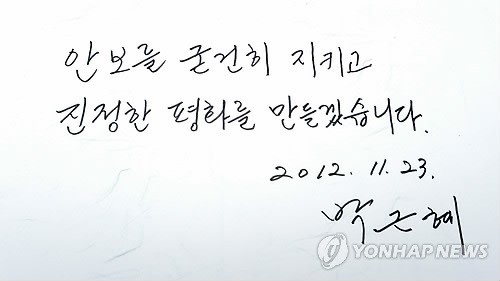 안보를 굳건히 지키고
진정한 평화를 만들겠습니다.
2012. 11. 23.
박근혜
YONHAP NEWS